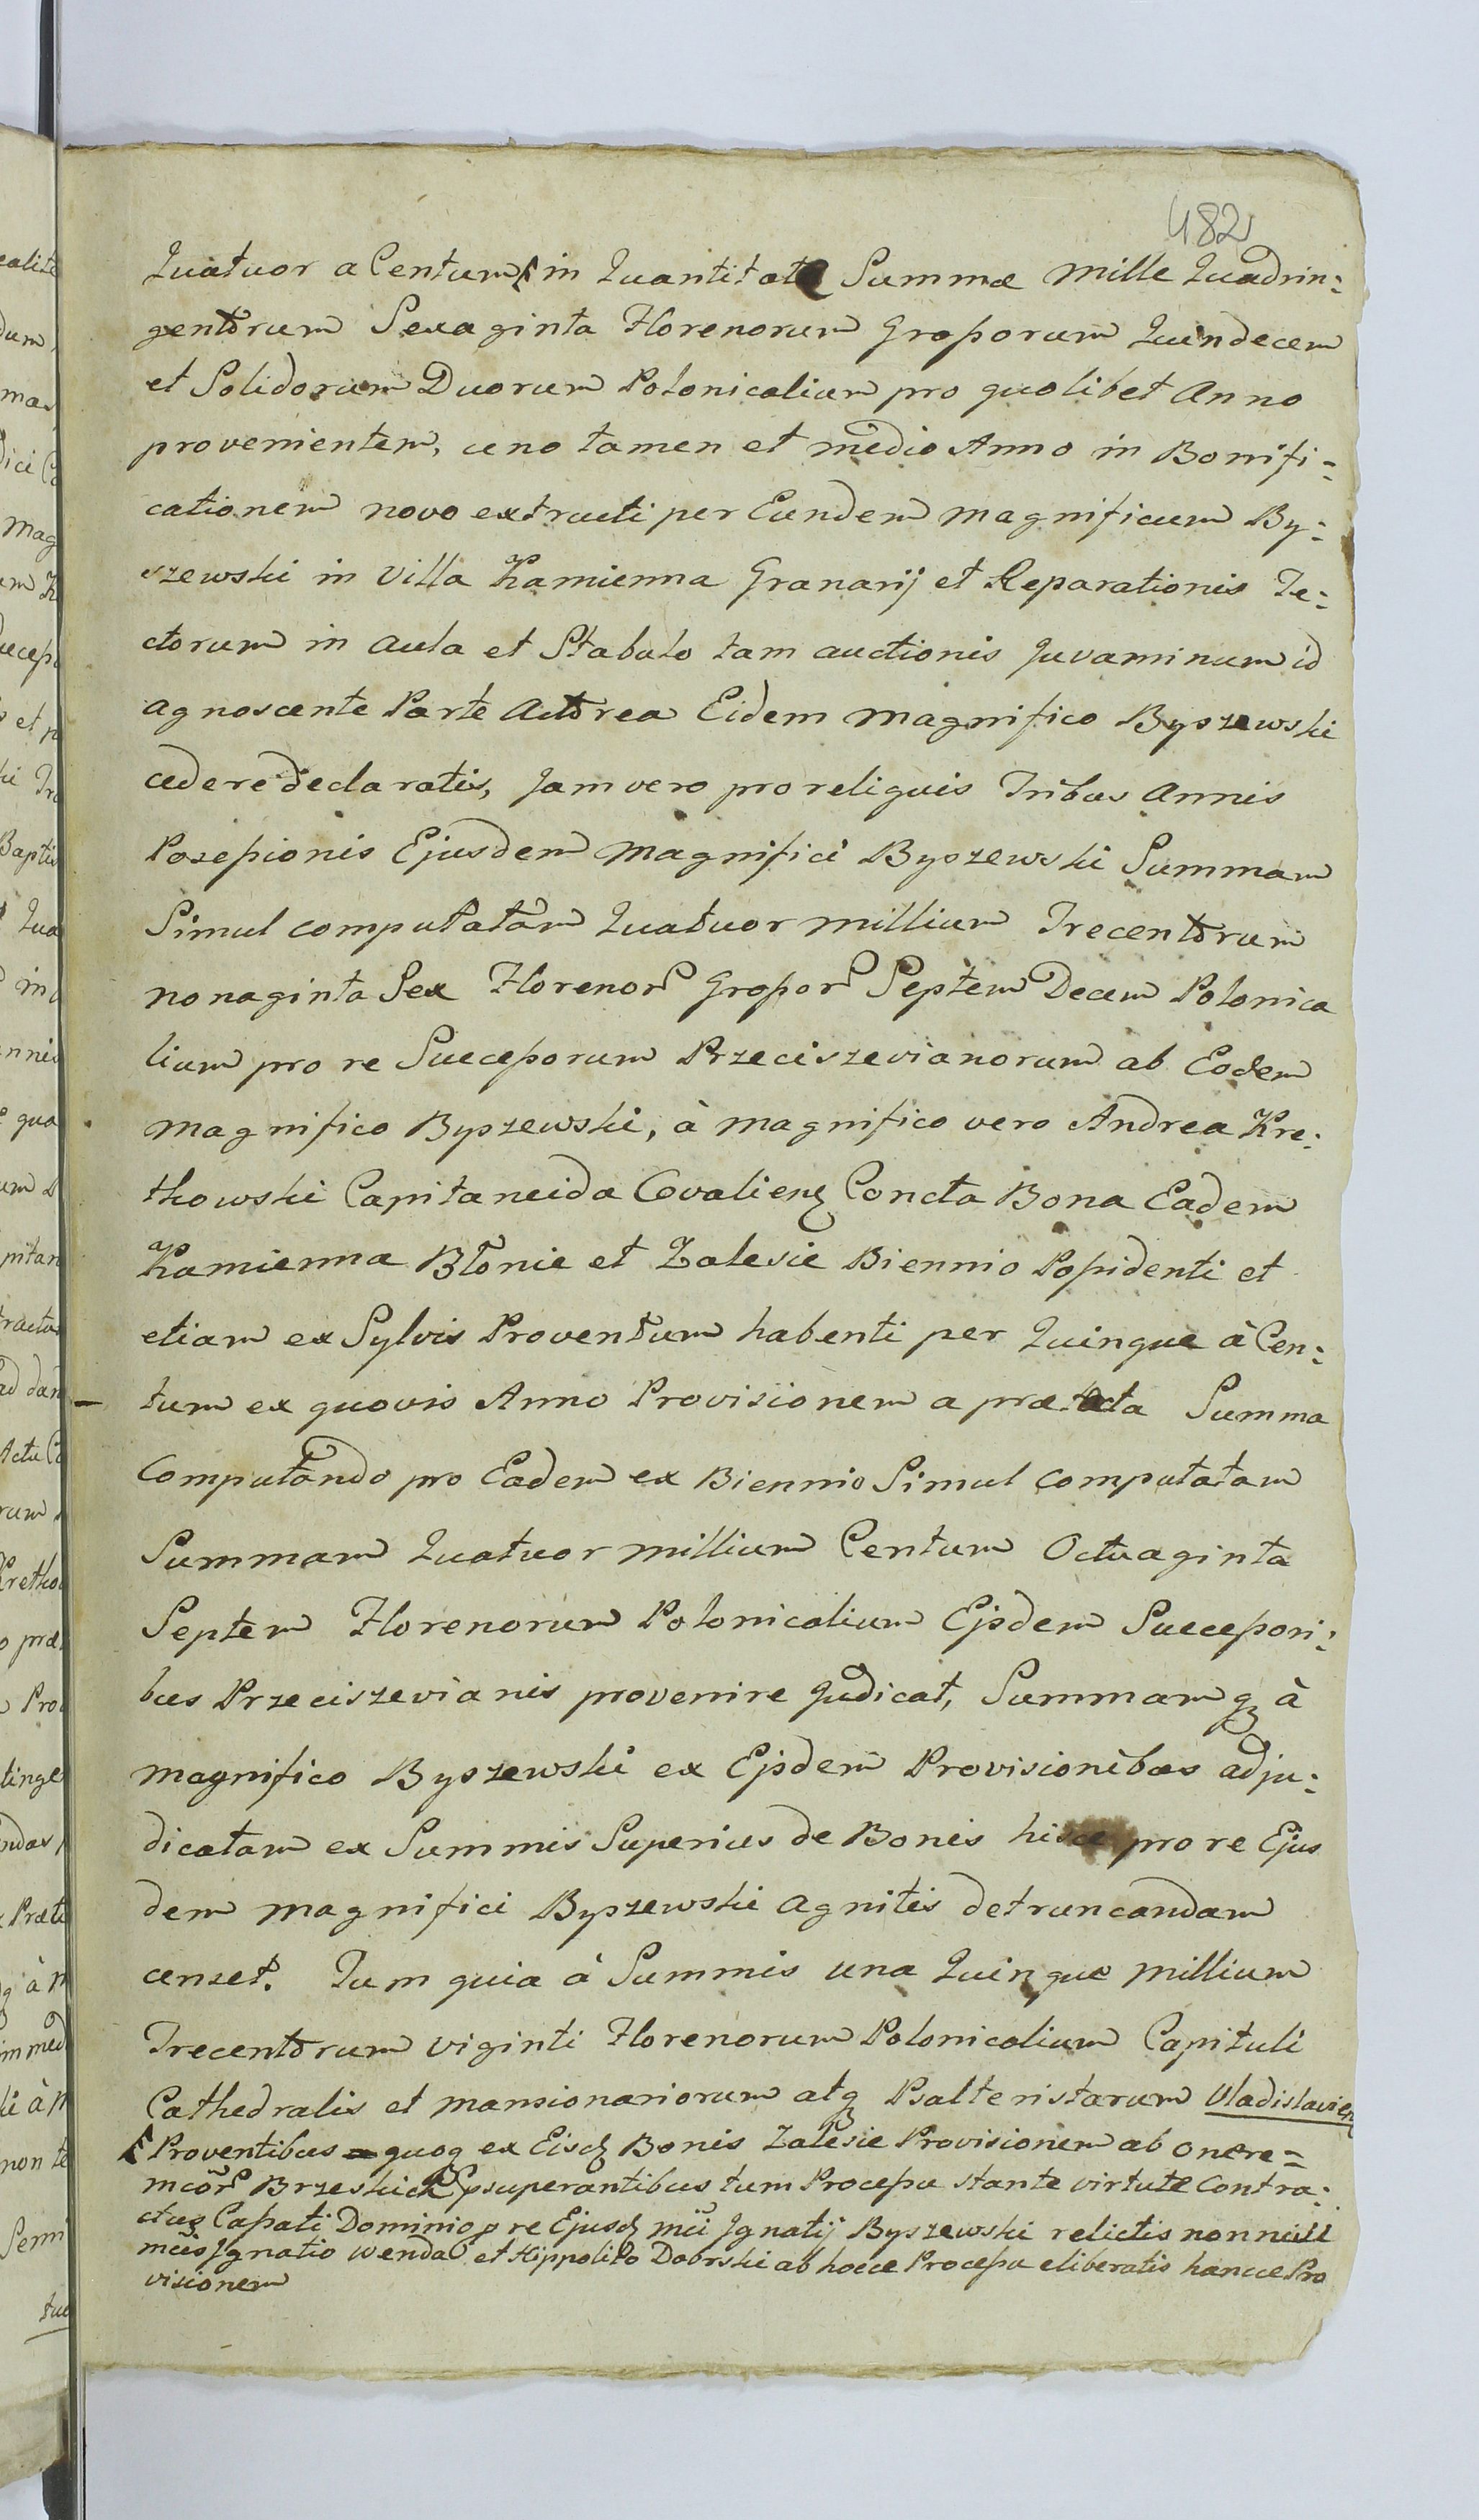 482
Quatuor a Centum in Quantitate Summæ Mille Quadrin:
gentorum Sexaginta Florenorum Grossorum Quindecem
et Solidorum Duorum Polonicalium pro quolibet Anno
provenientem, uno tamen et medio Anno in Bonifi=
cationem novo extructi per Eundem Magnificum By:
szewski in Villa Kamienna Granarij et Reparationis Te:
ctorum in Aula et Stabulo tam auctionis Juvaminum id
agnoscente Parte Actorea Eidem Magnifico Byszewski
cedere declaratis, Jam vero pro reliquis Tribus Annis
Possessionis Ejusdem Magnifici Byszewski Summam
Simul computatam Quatuor Millium Trecentorum
nonaginta Sex Florenor Grossor Septem Decem Polonica
lium pro re Successorum Przeciszevianorum ab Eodem
Magnifico Byszewski, à Magnifico vero Andrea Kre:
tkowski Capitaneida Covalien Concta Bona Eadem
Kamienna Błonie et Zalesie Biennio Possidenti et
etiam ex Sylvis Proventum habenti per Quinque à Cen:
tum ex quovis Anno Provisionem a prætacta Summa
Computando pro Eadem ex Biennio Simul computatam
Summam Quatuor Millium Centum Octuaginta
Septem Florenorum Polonicalium Ejsdem Successori:
bus Przeciszevianis provenire Judicat, Summamq à
Magnifico Byszewski ex Ejsdem Provisionibus adju:
dicatam ex Summis Superius de Bonis hisce pro re Ejus
dem Magnifici Byszewski agnitis detruncandam
censet. Tum quia à Summis una Quinque Millium
Trecentorum viginti Florenorum Polonicalium Capituli
Cathedralis et Mansionariorum atq Psalteristarum Vladislavien
Proventibus quoq ex Eisd Bonis Zalesie Provisionem ab onere=
mcor Brzeskich superantibus tum Processu stante virtute Contra:
ctus Cassati Dominio p re Ejusd mci Ignatij Byszewski relictis nonnisi
mcis Ignatio Wenda et Hippolito Dobrski ab hocce Processu eliberatis hancce Pro
visionem